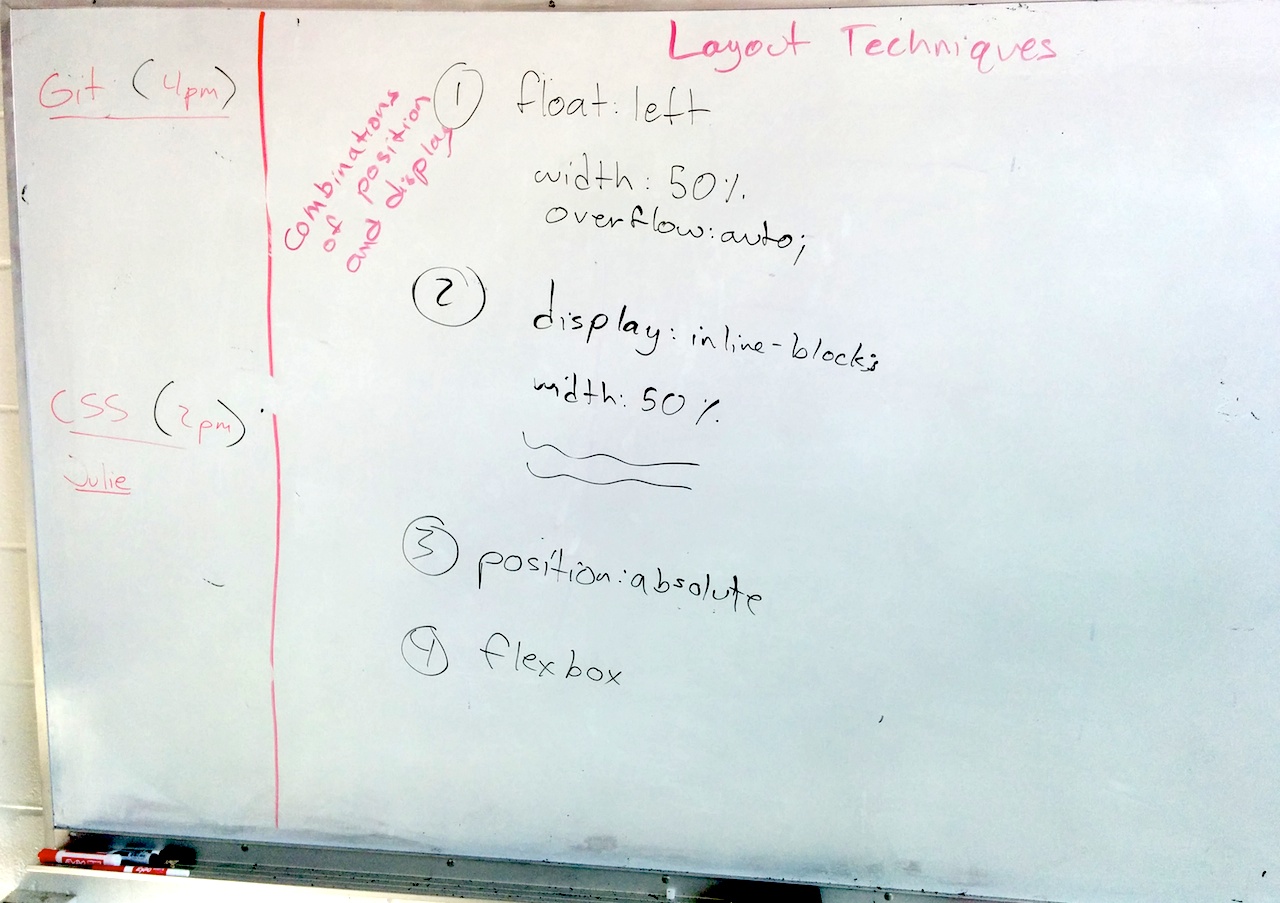 Git (4pm)
CSS (2pm)
Julie
Layout Techniques
Combinations
of position
and display
1 float: left
width: 50%.
overflow: auto;
2 display: inline-block;
width: 50%.
3 position: absolute
4 flexbox